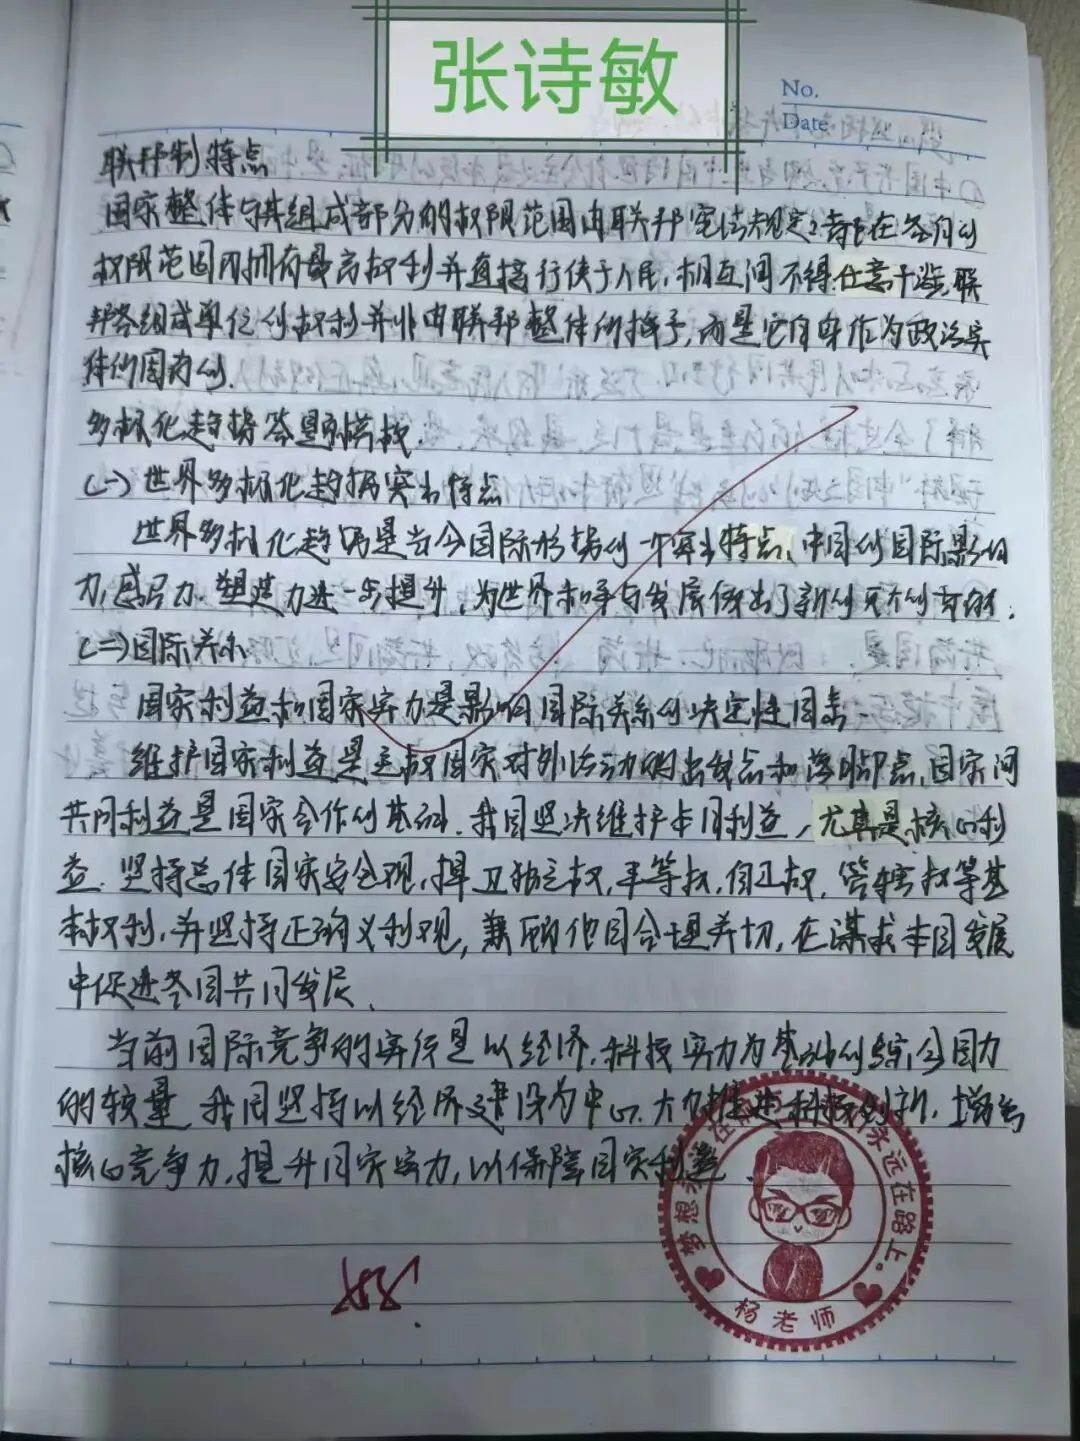 张诗敏
No.
Date
联邦制特点
国家整体与其组成部分的权限范围由联邦宪法规定,都在各自的
权限范围内拥有最高权利并直接行使于人民,相互间不得任意干涉,联
邦各组成单位的权利并非由联邦整体所授予,而是它自身作为政治实
体所固有的.
多极化趋势答题模板.
(一)世界多极化趋势突出特点
世界多极化趋势是当今国际形势的一个突出特点、中国的国际影响
力,感召力.塑造力进一步提升,为世界和平与发展做出了新的更大的贡献.
(二)国际关系
国家利益和国家实力是影响国际关系的决定性因素.
维护国家利益是主权国家对外活动的出发点和落脚点,国家间
共同利益是国家合作的基础.我国坚决维护本国利益,尤其是核心利
益.坚持总体国家安全观,捍卫独立权,平等权,自卫权,管辖权等基
本权利,并坚持正确义利观,兼顾他国合理关切,在谋求本国发展
中促进各国共同发展.
当前国际竞争的实质是以经济,科技实力为基础的综合国力
的较量.我国坚持以经济建设为中心.大力推进科技创新,增强
核心竞争力,提升国家实力,以保障国家利益.
梦想 在 永远在路上。
杨老师